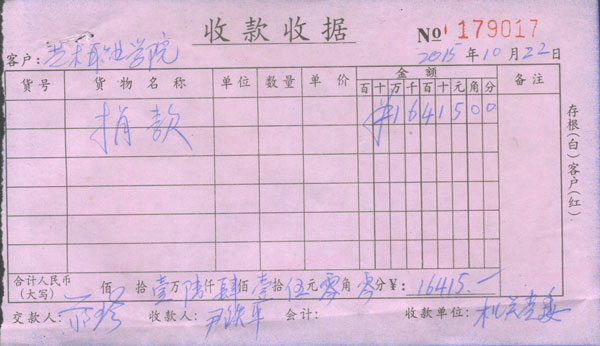 收款收据
No 179017
客户：艺术职业学院 2015年10月22日
货号 货物名称 单位 数量 单价 金额 备注
百十万千百十元角分
捐款 ¥1641500
存根(白)客户(红)
合计人民币(大写) 佰 拾 壹万 陆仟 肆佰 壹拾 伍元 零角 零分 ¥：16415.—
交款人： 收款人： 会计： 收款单位：机关党委